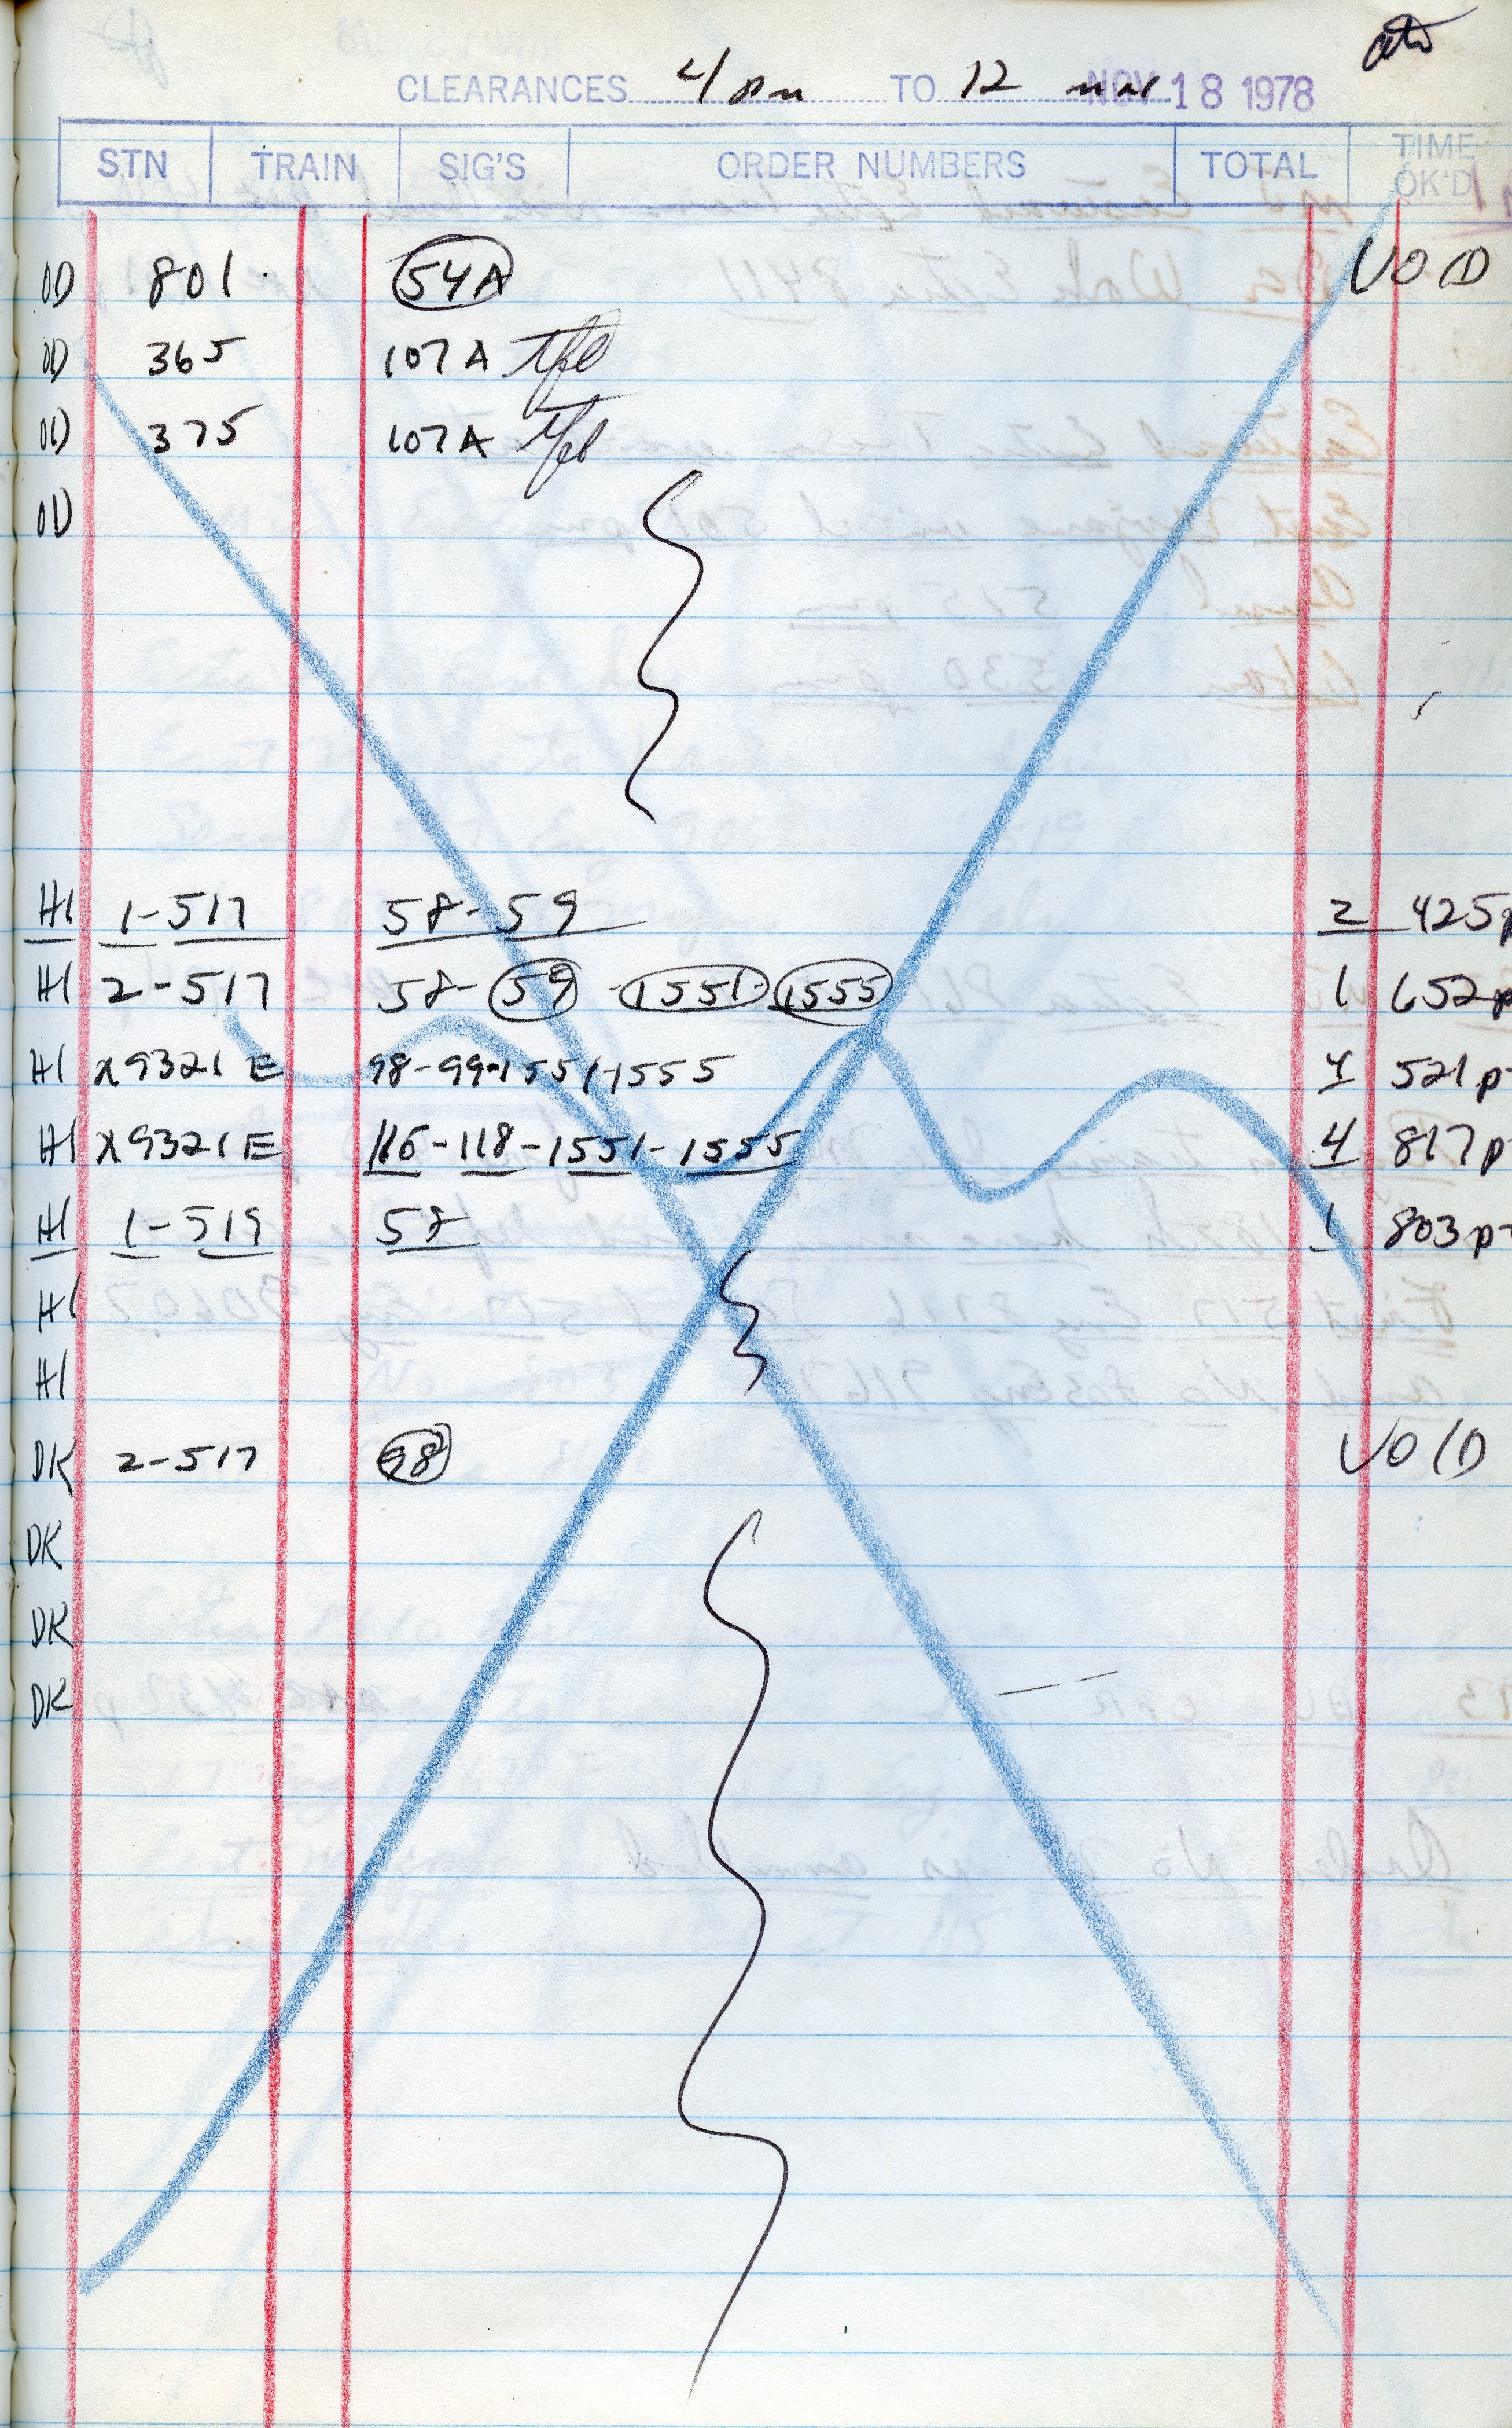 CLEARANCES 4 pm TO 12 mn NOV 18 1978
STN TRAIN SIG'S ORDER NUMBERS TOTAL TIME OK'D
OD 801 54A VOID
OD 365 107A
OD 375 107A
OD
HI 1-517 58-59 2 425p
HI 2-517 58-59-1551-1555 1 652p
HI X9321E 98-99-1551-1555 4 521p
HI X9321E 116-118-1551-1555 4 817p
HI 1-519 58 1 803p
HI
HI
DK 2-517 98 VOID
DK
DK
DK